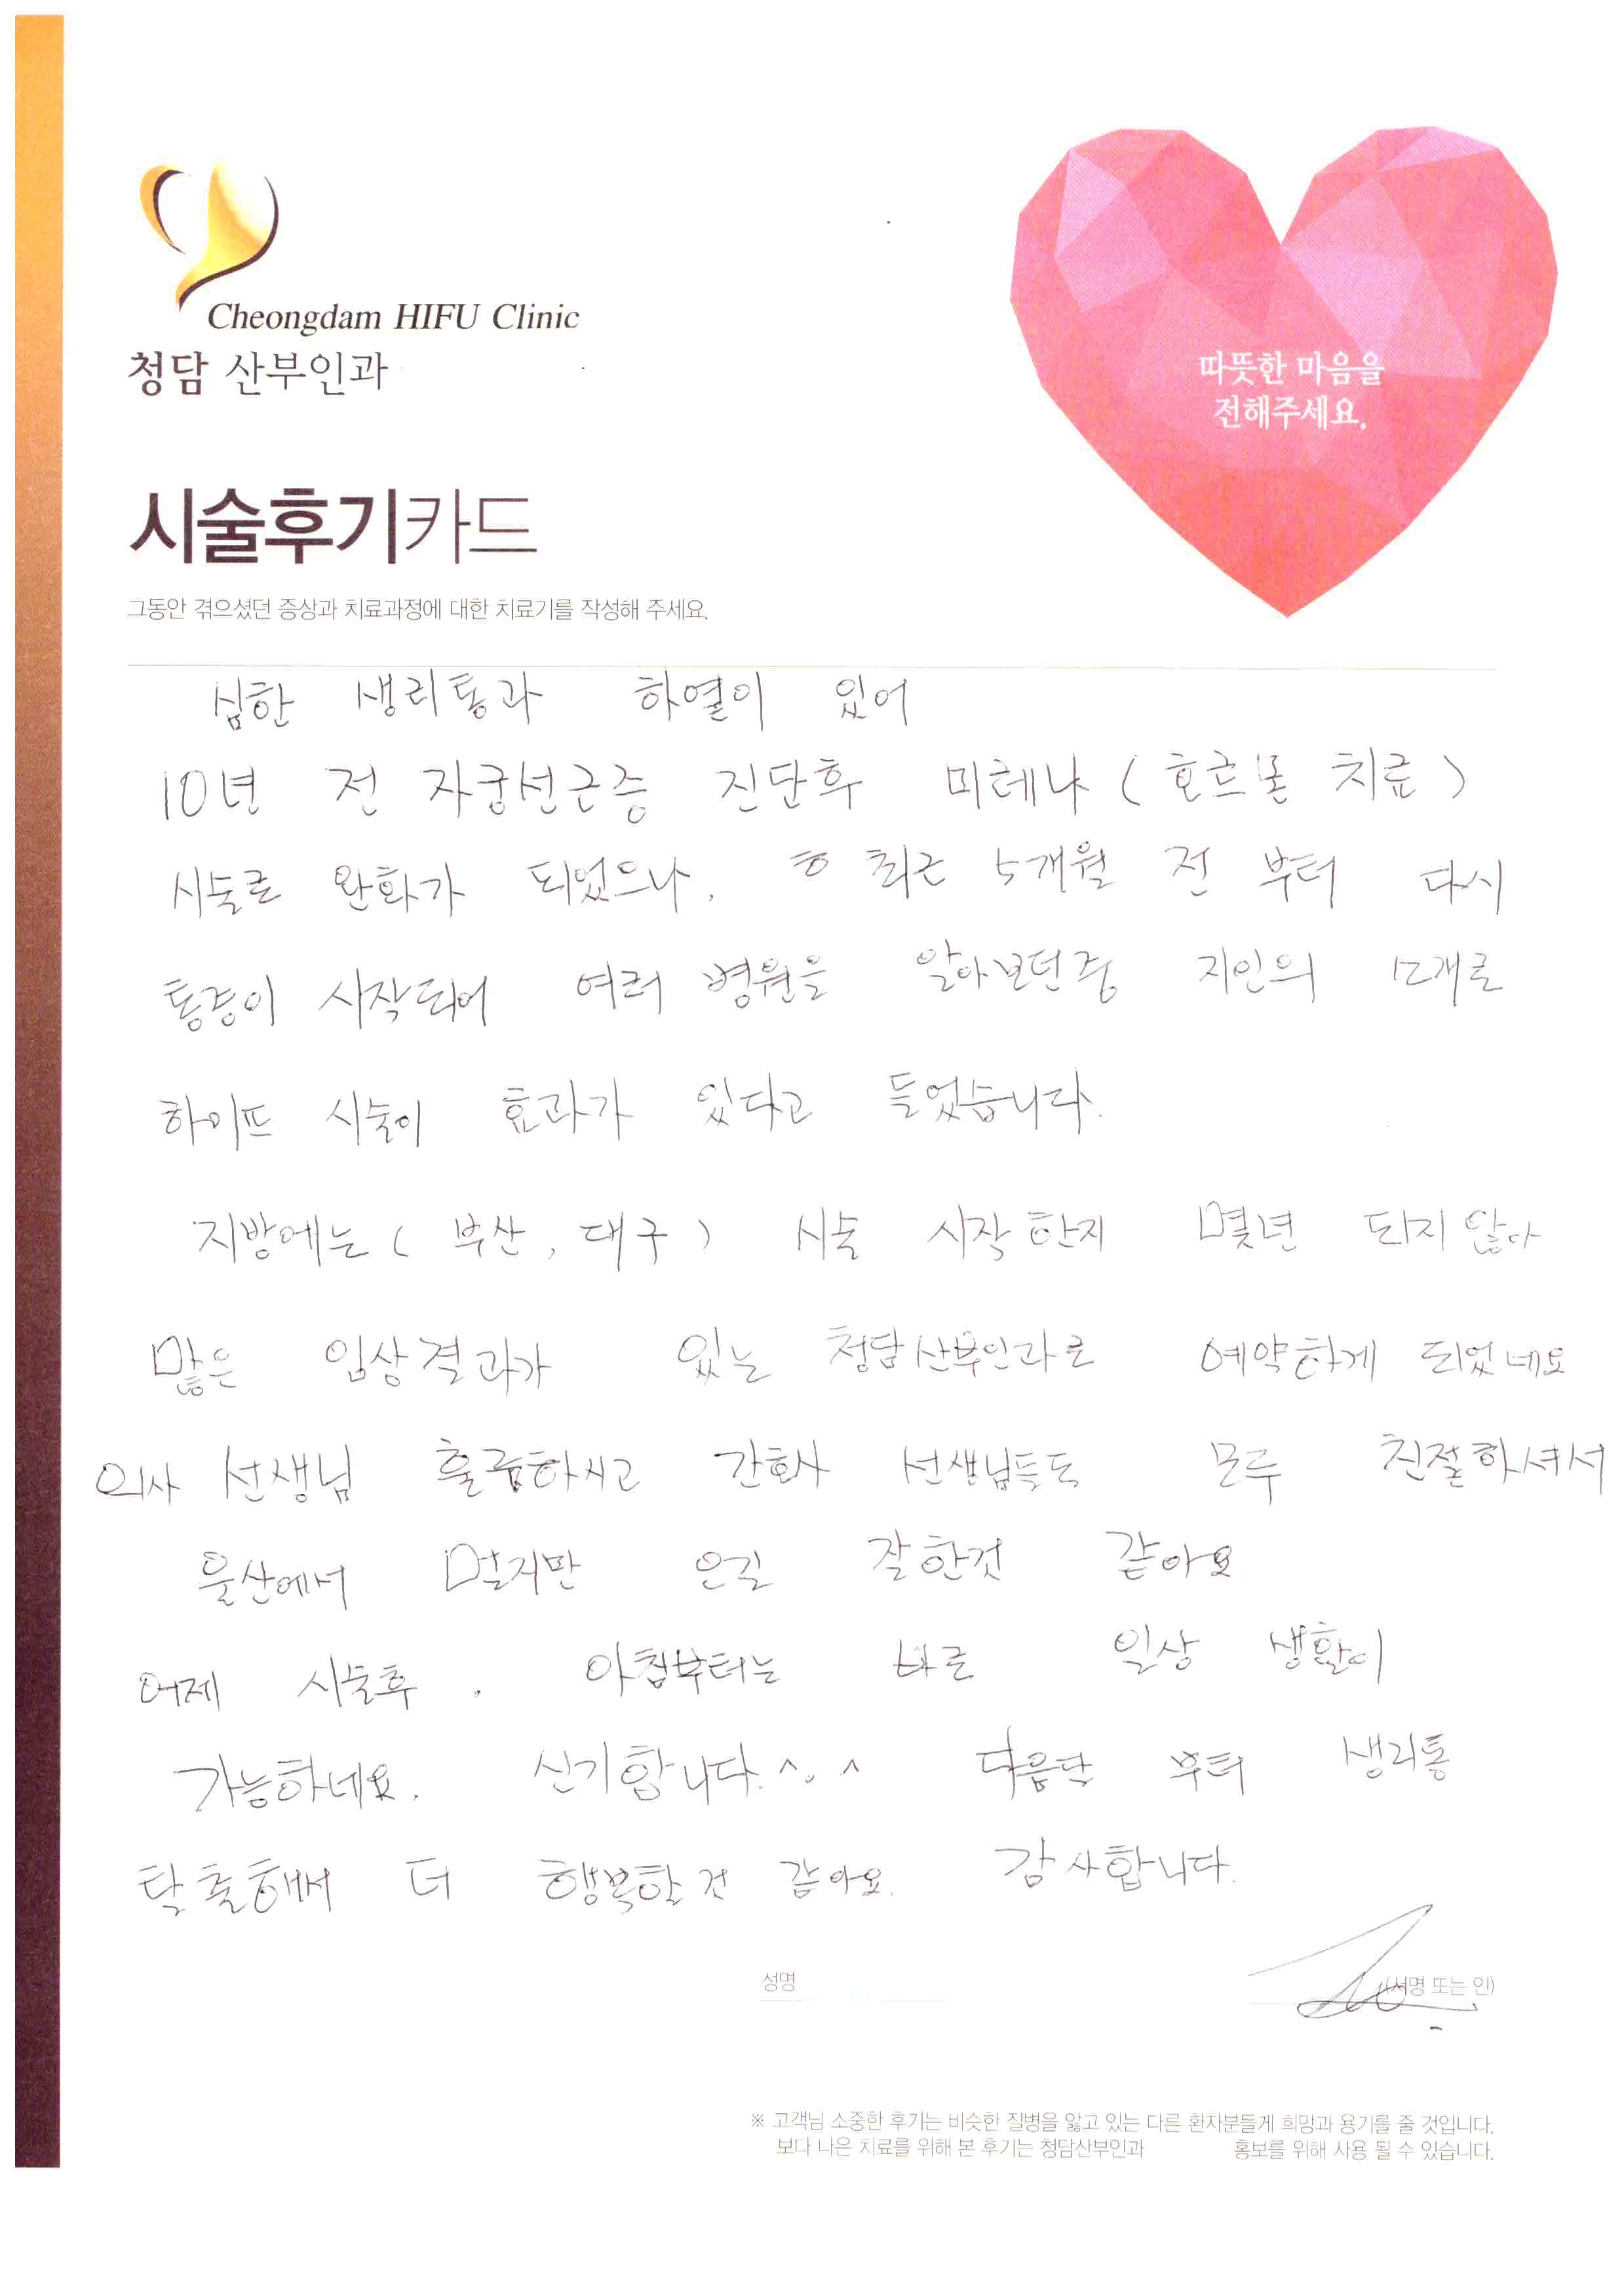 Cheongdam HIFU Clinic
청담 산부인과
따뜻한 마음을
전해주세요.
시술후기카드
그동안 겪으셨던 증상과 치료과정에 대한 치료기를 작성해 주세요.
심한 생리통과 하열이 있어
10년 전 자궁선근증 진단후 미레나 ( 호르몬 치료 )
시술로 완화가 되었으나, 최근 5개월 전 부터 다시
통증이 시작되어 여러 병원을 알아보던중 지인의 소개로
하이프 시술이 효과가 있다고 들었습니다.
지방에는 ( 부산, 대구 ) 시술 시작한지 몇년 되지 않아
많은 임상결과가 있는 청담산부인과로 예약하게 되었네요
의사 선생님 훌륭하시고 간호사 선생님들도 모두 친절하셔서
울산에서 멀지만 온길 잘한것 같아요
어제 시술후, 아침부터는 바로 일상 생활이
가능하네요. 신기합니다.^.^ 다음달 부터 생리통
탈출해서 더 행복할 것 같아요. 감사합니다.
성명 (서명 또는 인)
※ 고객님 소중한 후기는 비슷한 질병을 앓고 있는 다른 환자분들게 희망과 용기를 줄 것입니다.
보다 나은 치료를 위해 본 후기는 청담산부인과 홍보를 위해 사용 될 수 있습니다.